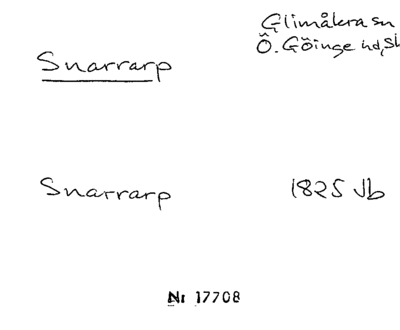 Glimåkra sn
Snarrarp
Ö. Göinge hd, Sk
Snarrarp 1825 Jb
Nr 17708